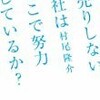 売りしない
社は 村尾隆介
こで努力
しているか?